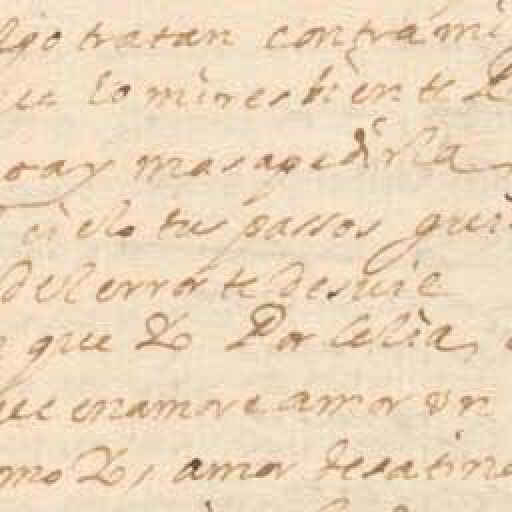 lgo tratan contra mi
que lo mires bien te
oay mas a pedirla
cielo tus passos gui
del error te desuie
que Por Celia,
ue enamore amor vn
mo amor desatin